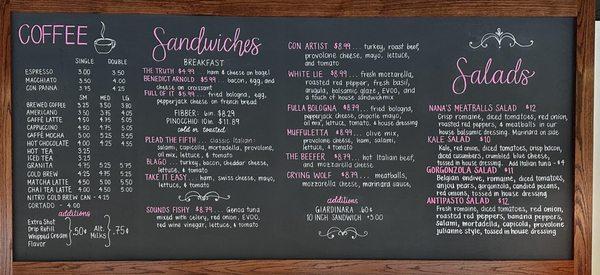 COFFEE
SINGLE DOUBLE
ESPRESSO 3.00 3.50
MACCHIATO 3.50 4.00
CON PANNA 3.75 4.25
SM MED LG
BREWED COFFEE 3.25 3.50 3.80
AMERICANO 3.50 3.75 4.05
CAFFÈ LATTE 4.50 4.75 5.05
CAPPUCCINO 4.50 4.75 5.05
CAFFÈ MOCHA 5.00 5.25 5.55
HOT CHOCOLATE 4.00 4.25 4.55
HOT TEA 3.25
ICED TEA 3.25
GRANITA 4.75 5.25 5.75
COLD BREW 4.25 4.75 5.25
MATCHA LATTE 4.50 5.00 5.50
CHAI TEA LATTE 4.00 4.50 5.00
NITRO COLD BREW CAN - 4.25
CORTADO - 4.00
additions
Extra Shot
Drip Refill
Whipped Cream
Flavor
.50¢
Alt. Milks
.75¢
Sandwiches
BREAKFAST
THE TRUTH $4.99 ... ham & cheese on bagel
BENEDICT ARNOLD $5.99 ... bacon, egg, and
cheese on croissant
FULL OF IT $5.99 ... fried bologna, egg,
pepperjack cheese on french bread
FIBBER: 6in $8.29
PINOCCHIO: 10in $11.89
cold or toasted
PLEAD THE FIFTH ... classic Italian -
salami, capicola, mortadella, provolone,
oil mix, lettuce, & tomato
BLAGO ... turkey, bacon, cheddar cheese,
lettuce, & tomato
TAKE IT EASY ... ham, swiss cheese, mayo,
lettuce, & tomato
SOUNDS FISHY $8.79 ... Genoa tuna
mixed with celery, red onion, EVOO,
red wine vinegar, lettuce, & tomato
CON ARTIST $8.99 ... turkey, roast beef,
provolone cheese, mayo, lettuce,
and tomato
WHITE LIE $8.99 ... fresh mozzarella,
roasted red pepper, fresh basil,
arugula, balsamic glaze, EVOO, and
a touch of house sandwich mix
FULLA BOLOGNA $8.79 ... fried bologna,
pepperjack cheese, chipotle mayo,
oil mix, lettuce, tomato, & house dressing
MUFFULETTA $8.99 ... olive mix,
provolone cheese, ham, salami,
lettuce, & tomato
THE BEEFER $8.79 ... hot Italian beef,
and mozzarella cheese
CRYING WOLF $8.79 ... meatballs,
mozzarella cheese, marinara sauce
additions
GIARDINARA .60¢
10 INCH SANDWICH +3.00
Salads
NANA'S MEATBALLS SALAD $12
Crisp romaine, diced tomatoes, red onion,
roasted red peppers, & meatballs in our
house balsamic dressing. Marinara on side
KALE SALAD $10
Kale, red onion, diced tomatoes, crisp bacon,
diced cucumbers, crumbled blue cheese,
tossed in house dressing. Add Italian tuna - $4
GORGONZOLA SALAD $11
Belgian endive, romaine, diced tomatoes,
anjou pears, gorgonzola, candied pecans,
red onions, tossed in house dressing
ANTIPASTO SALAD $12
Fresh romaine, diced tomatoes, red onion,
roasted red peppers, banana peppers,
salami, mortadella, capicola, provolone
julianne style, tossed in house dressing